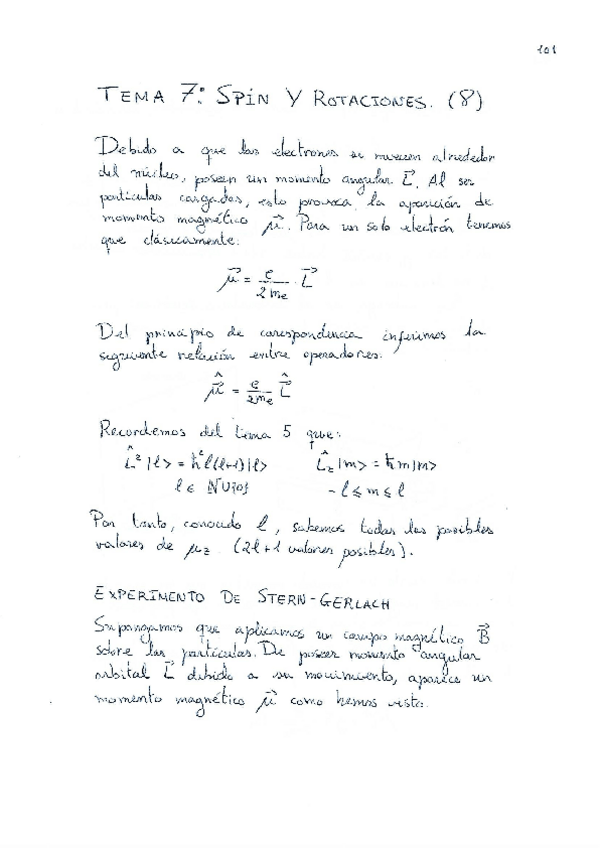 101
TEMA 7: SPIN Y ROTACIONES. (8)
Debido a que los electrones se mueven alrededor
del núcleo, poseen un momento angular L⃗. Al ser
partículas cargadas, esto provoca la aparición de
momento magnético μ⃗. Para un solo electrón tenemos
que clásicamente:
μ⃗ = e/2me L⃗
Del principio de correspondencia inferimos la
seguiente relación entre operadores:
μ⃗̂ = e/2me L⃗̂
Recordemos del tema 5 que:
L̂²|l> = ħ²l(l+1)|l> L̂z|m> = ħm|m>
l ∈ ℕU{0} -l ≤ m ≤ l
Por tanto, conocido l, sabemos todos los posibles
valores de μz (2l+1 valores posibles).
EXPERIMENTO DE STERN-GERLACH
Supongamos que aplicamos un campo magnético B⃗
sobre las partículas. De poseer momento angular
orbital L⃗ debido a su movimiento, aparece un
momento magnético μ⃗ como hemos visto.